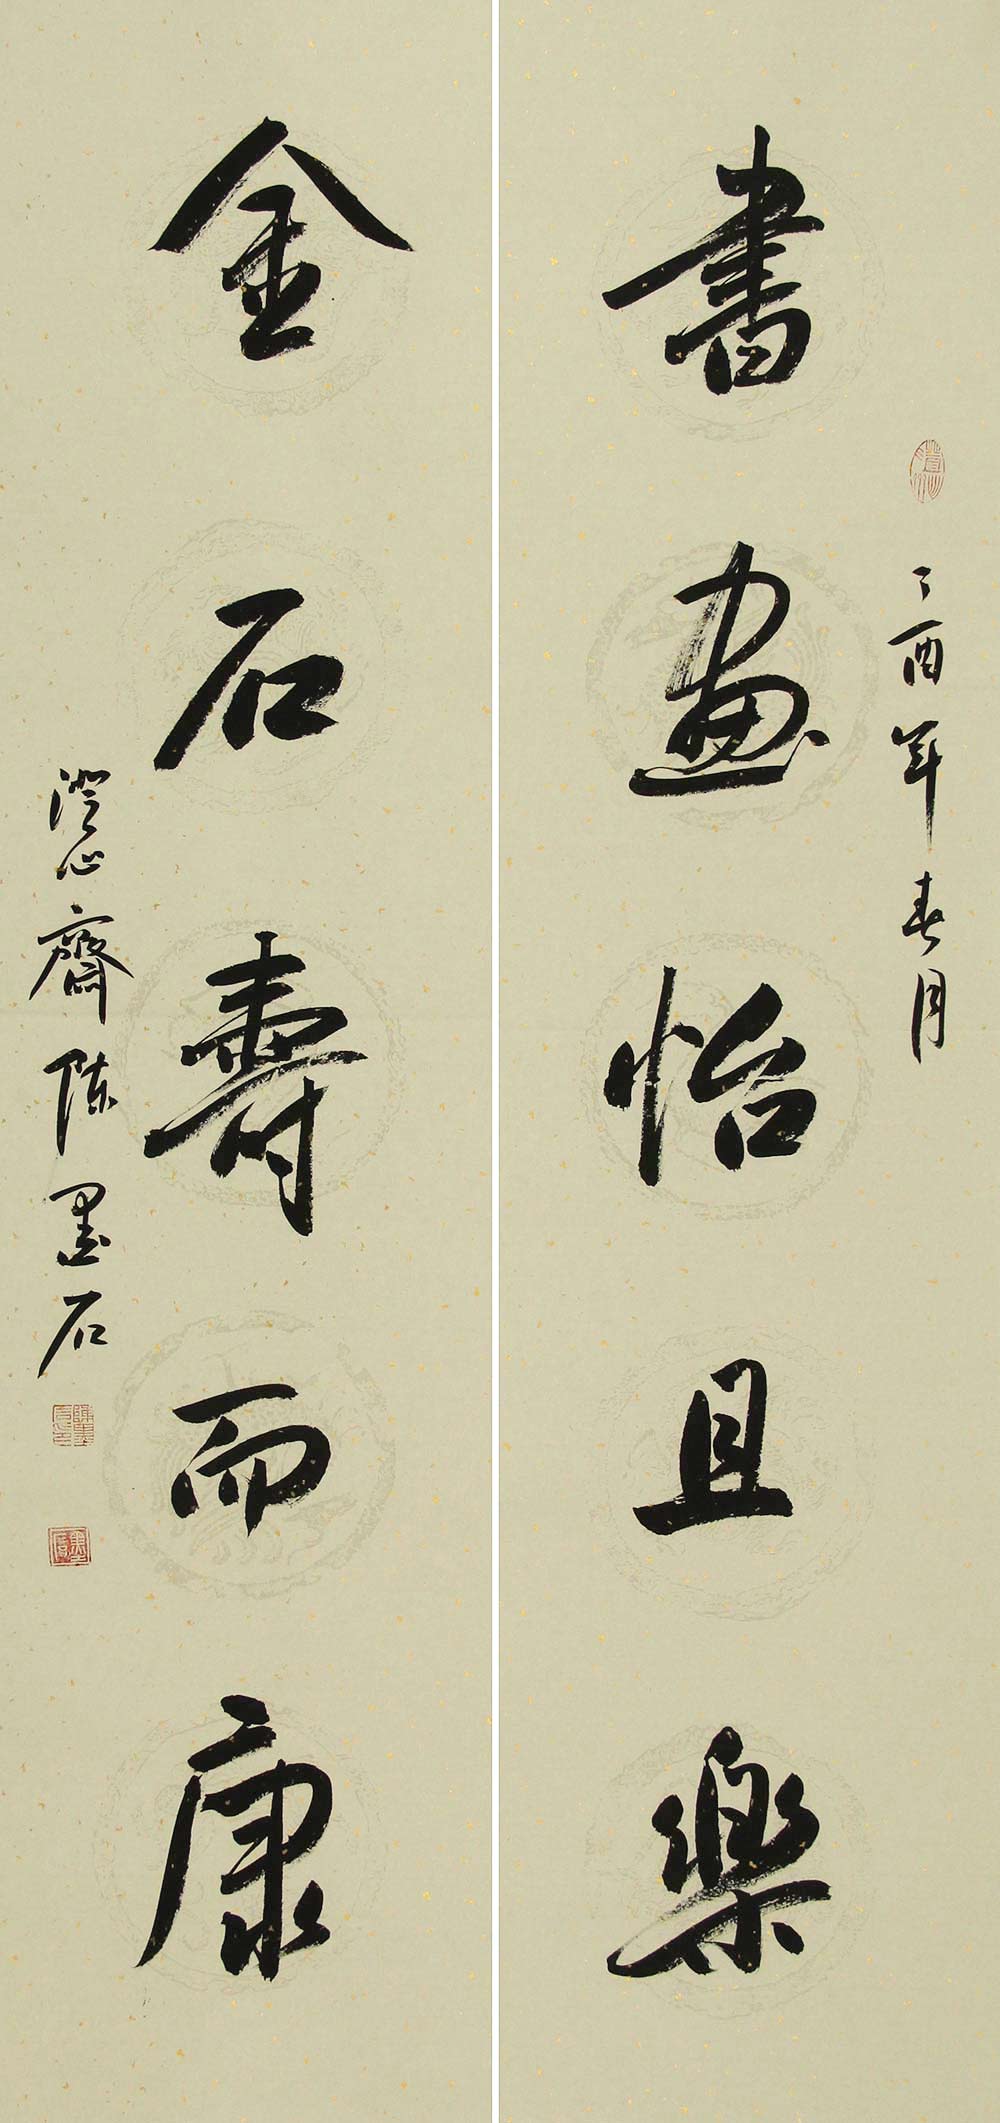 書畫怡且樂
丁酉年春月
金石壽而康
澄心齋陳墨石